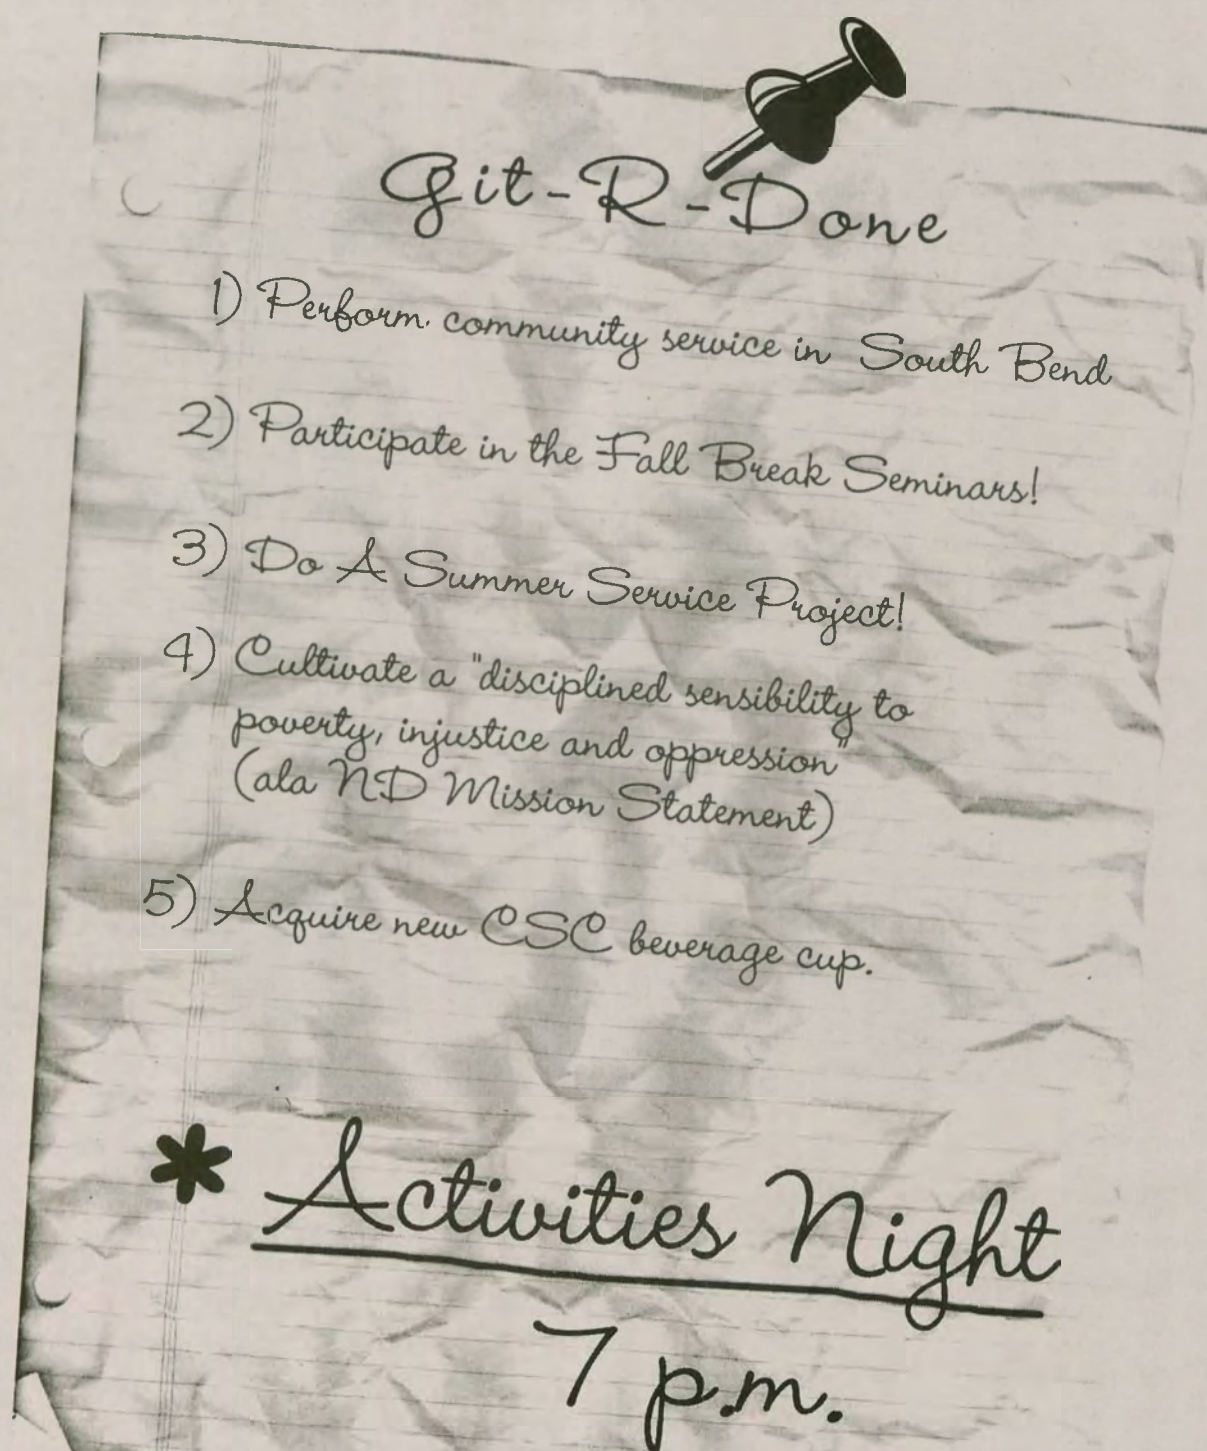 Git-R-Done
1) Perform community service in South Bend
2) Participate in the Fall Break Seminars!
3) Do A Summer Service Project!
4) Cultivate a "disciplined sensibility to
poverty, injustice and oppression"
(ala ND Mission Statement)
5) Acquire new CSC beverage cup.
* Activities Night
7 p.m.